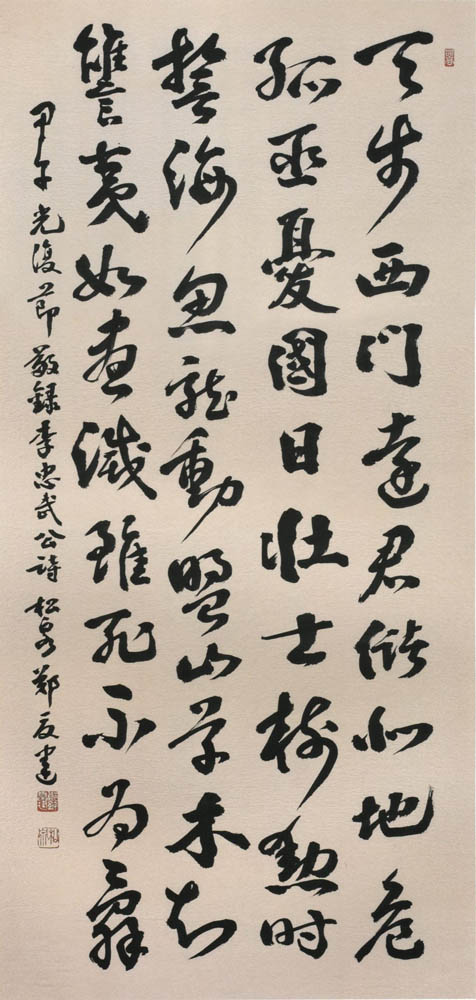 天步西門遠君儲北地危
孤臣憂國日壯士樹勳時
誓海魚龍動盟山草木知
讎夷如盡滅雖死不為辭
甲午光復節敬錄李忠武公詩 松泉鄭夏建